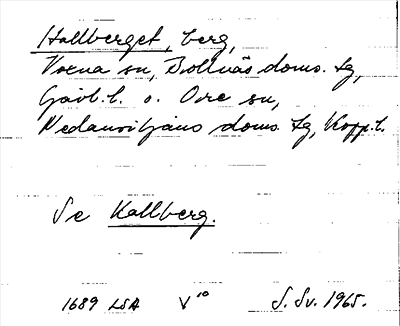 Hallberget, berg,
Voxna sn, Bollnäs doms. tg,
Gävl.l. o. Ore sn,
Nedansiljans doms. tg, Kopp.l.
Se Kallberg.
1689 LSA V 10 S. Sv. 1965.